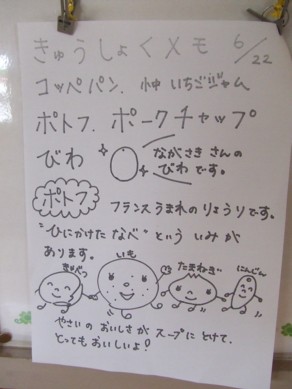 きゅうしょくメモ 6/22
コッペパン. 小中 いちごジャム
ポトフ. ポークチャップ
びわ
ながさき さんの
びわ です。
ポトフ
フランスうまれのりょうりです。
"ひにかけた なべ" という いみ が
あります。
きゃべつ
いも
たまねぎ
にんじん
やさいの おいしさが スープに とけて、
とっても おいしいよ!